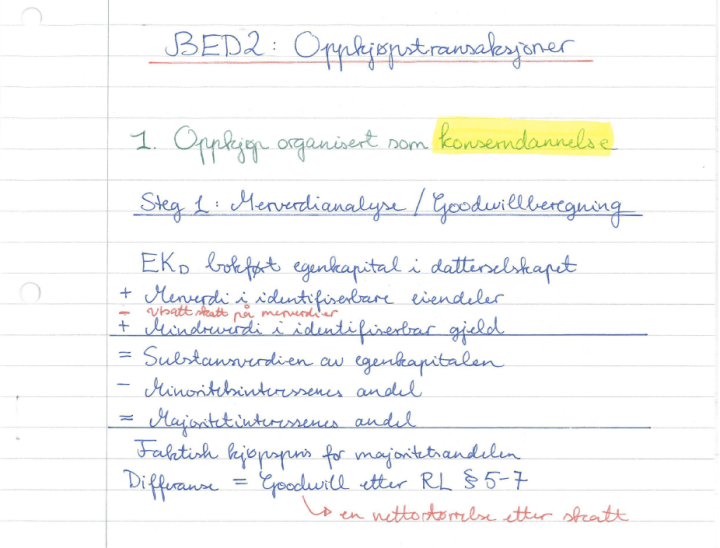 BED2: Oppkjøpstransaksjoner
1. Oppkjøp organisert som konserndannelse
Steg 1: Merverdianalyse / Goodwillberegning
EK_D bokført egenkapital i datterselskapet
+ Merverdi i identifiserbare eiendeler
- Utsatt skatt på merverdier
+ Mindreverdi i identifiserbar gjeld
= Substansverdien av egenkapitalen
- Minoritetsinteressenes andel
= Majoritetinteressenes andel
Faktisk kjøpspris for majoritetsandelen
Differanse = Goodwill etter RL § 5-7
↳ en nettostørrelse etter skatt